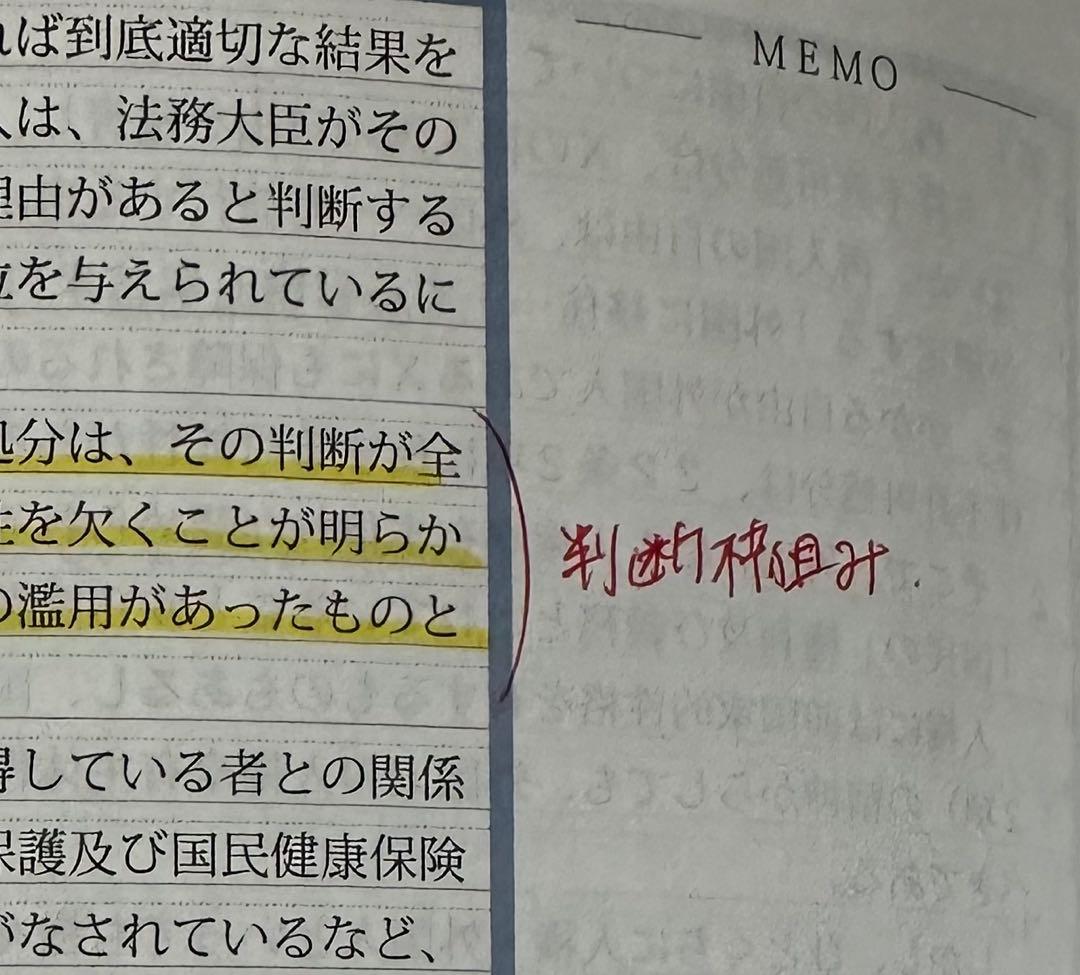 MEMO
ば到底適切な結果を
は、法務大臣がその
理由があると判断する
を与えられているに
処分は、その判断が全
性を欠くことが明らか
の濫用があったものと
判断枠組み
得している者との関係
保護及び国民健康保険
がなされているなど、